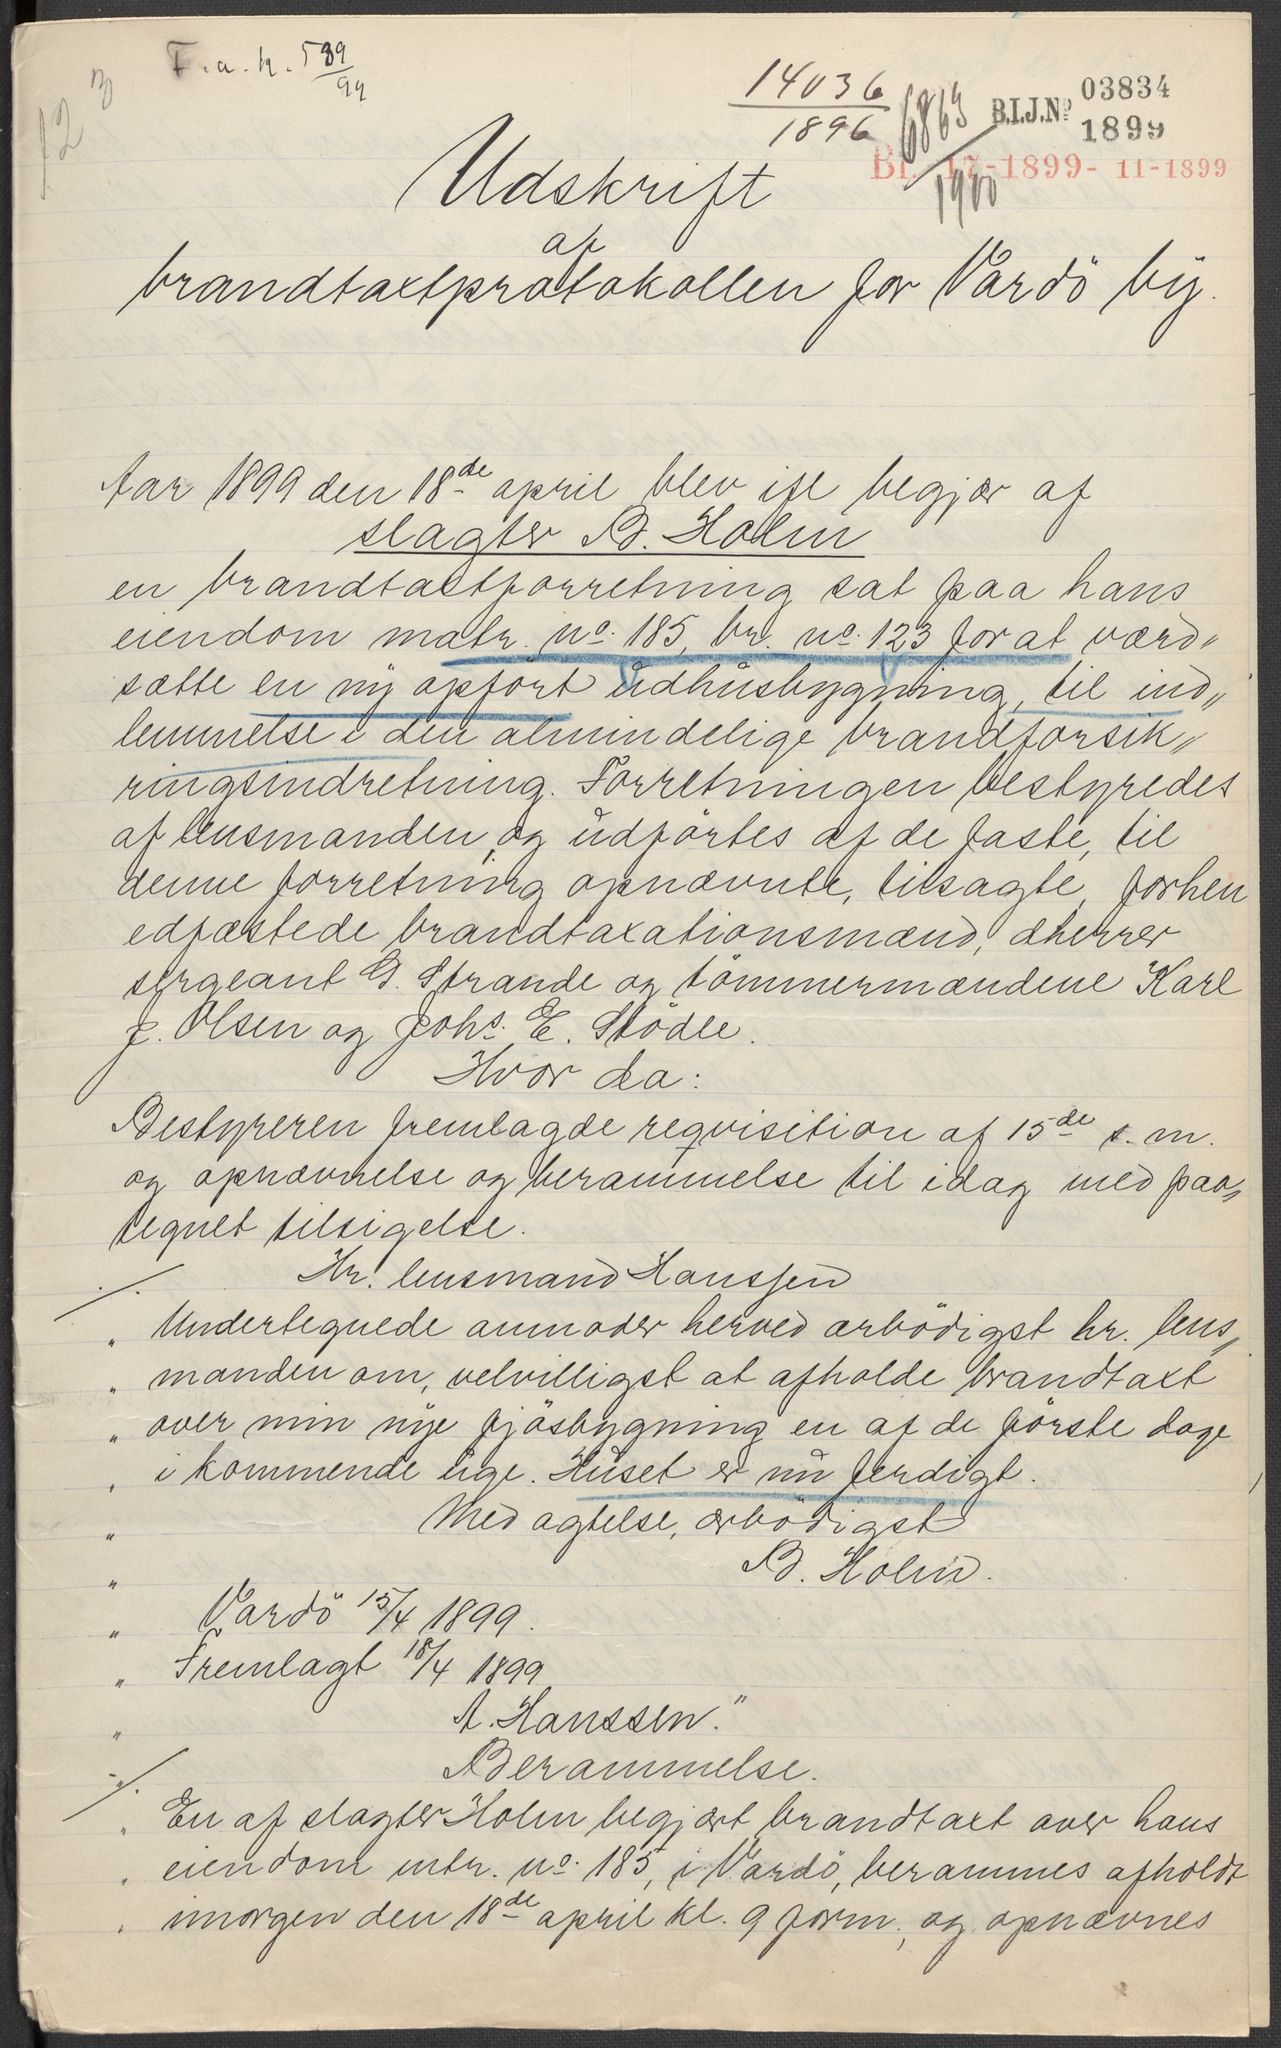 F.a.k. 589/94
12 3
14036
1896
6863
1900
B.I.J.No 03834
1899
Br. 17-1899- 11-1899
Udskrift
af
brandtaxtprotokollen for Vardö by.
Aar 1899 den 18de april blev ifl begjær af
slagter B. Holm
en brandtaxtforretning sat paa hans
eiendom matr. no. 185, br. no. 123 for at værd„
sætte en ny opført udhusbygning, til ind„
lemmelse i den almindelige brandforsik„
ringsindretning. Forretningen bestyredes
af lensmanden, og udførtes af de faste, til
denne forretning opnævnte, tilsagte, forhen
edfæstede brandtaxationsmænd, dherrer
sergeant G. Strande og tömmermændene Karl
J. Olsen og Johs. E. Stödle.
Hvor da:
Bestyreren fremlagde reqvisition af 15de s. m.
og opnævnelse og berammelse til idag med paa„
tegnet tilsigelse.
./. Hr. lensmand Hanssen
„ Undertegnede anmoder herved ærbödigst hr. lens„
„ manden om, velvilligst at afholde brandtaxt
„ over min nye fjösbygning en af de förste dage
„ i kommende uge. Huset er nu ferdigt.
„ Med agtelse, ærbödigst
„ B. Holm.
„ Vardö 15/4 1899.
„ Fremlagt 18/4 1899
„ A. Hanssen."
./. Berammelse.
„ En af slagter Holm begjært brandtaxt over hans
„ eiendom mtr. no. 185, i Vardö, berammes afholdt
„ imorgen den 18de april kl. 9 form., og opnævnes